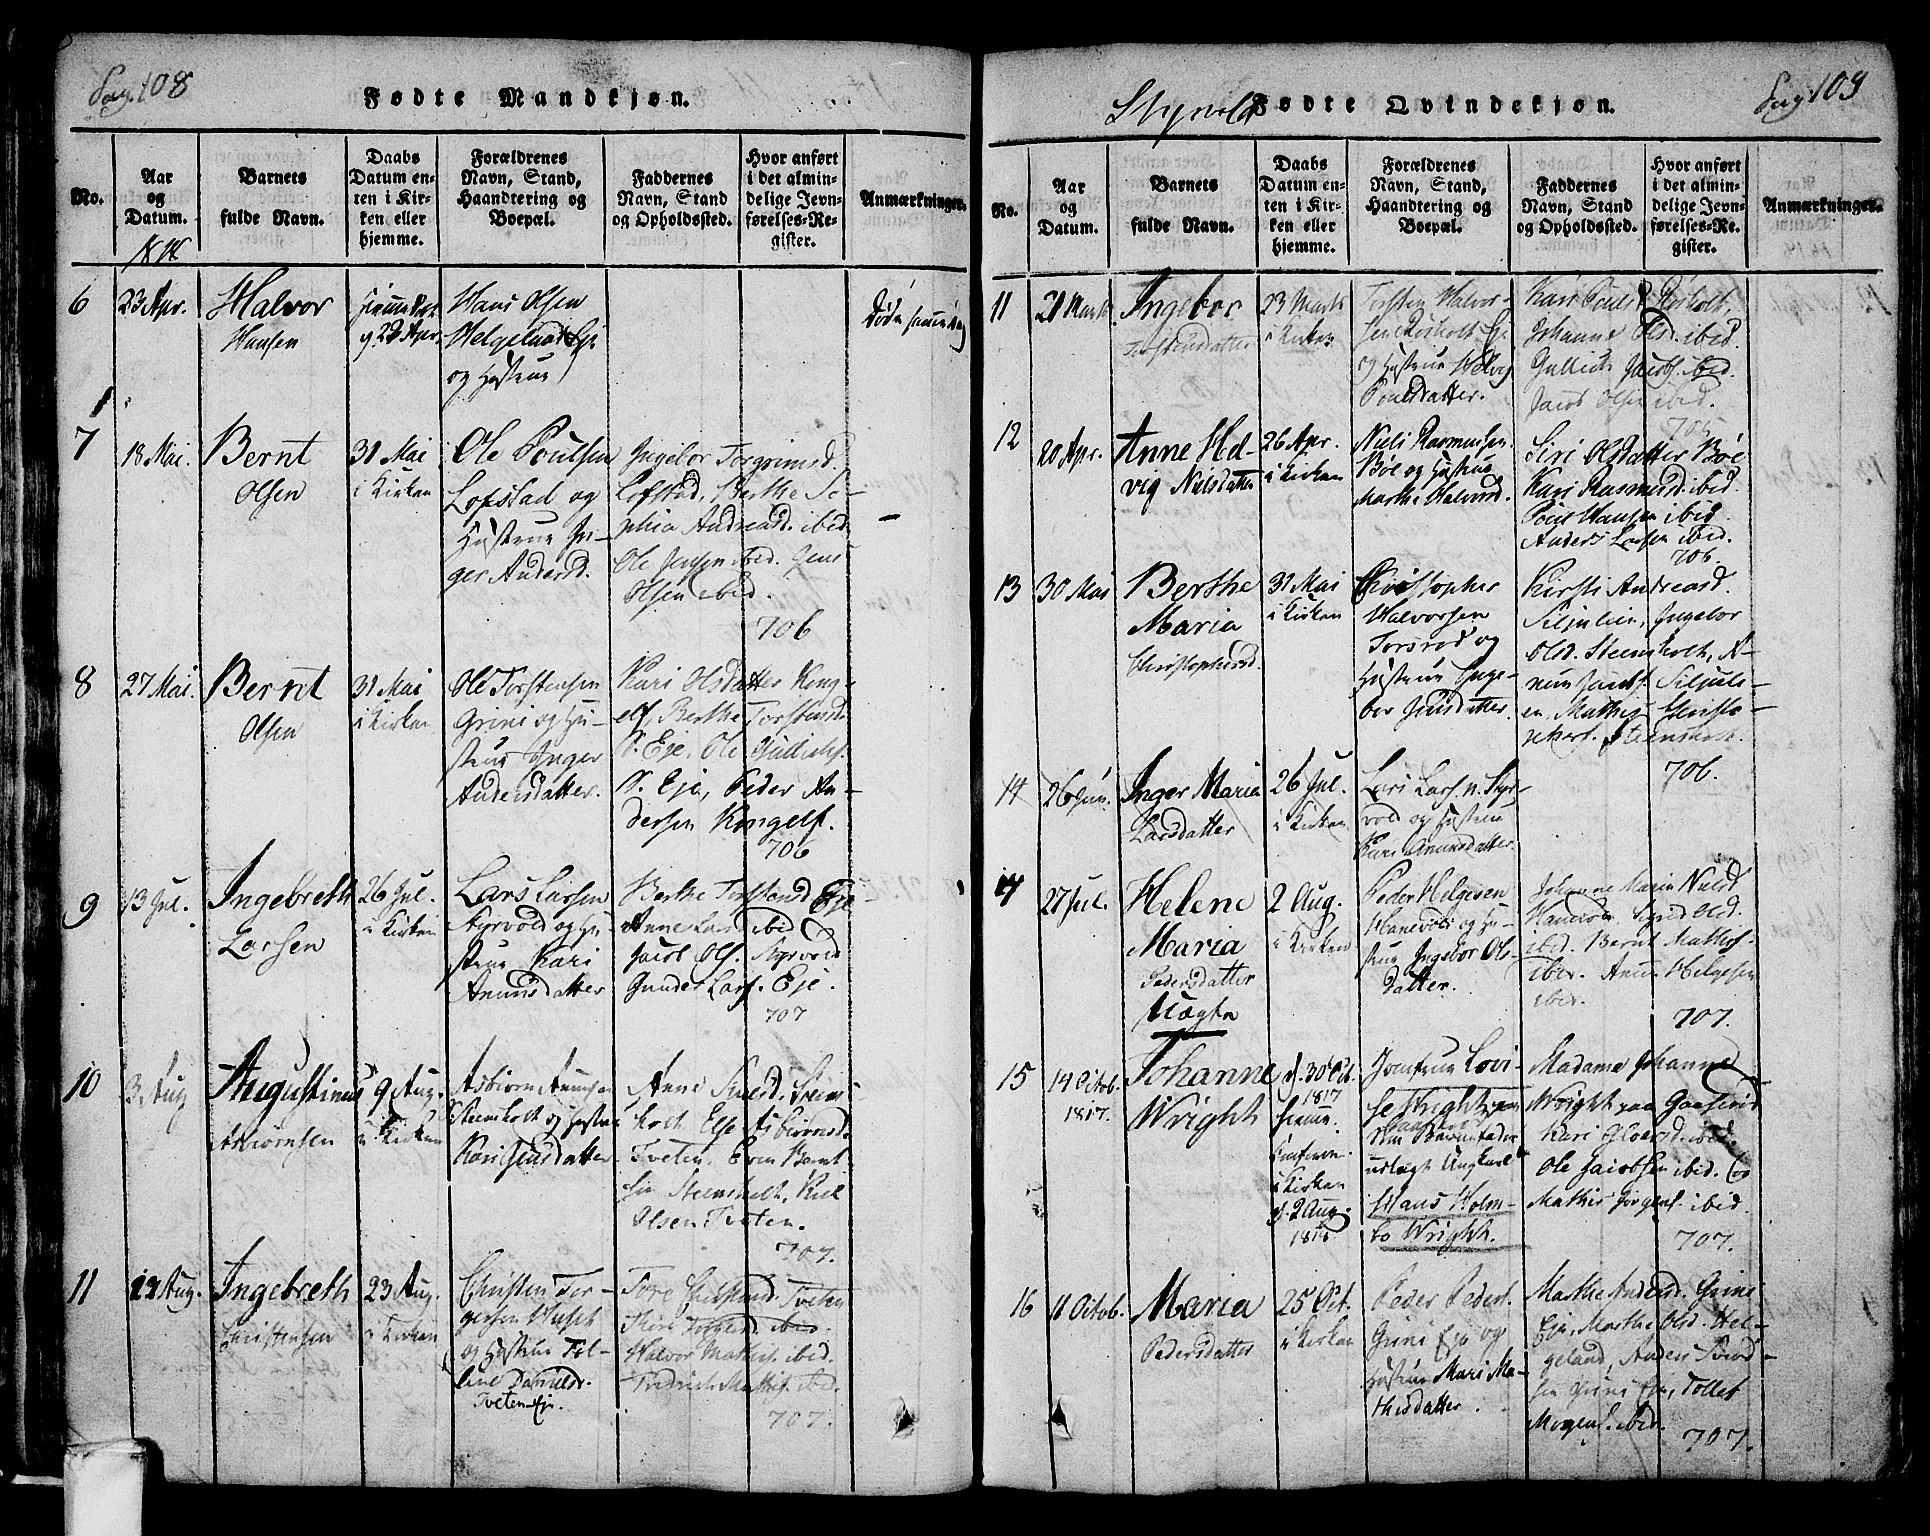 Pag. 108
Fødte Mandkjøn.
No.
Aar
og
Datum.
Barnets
fulde Navn.
Daabs
Datum en-
ten i Kir-
ken eller
hjemme.
Forældrenes
Navn, Stand,
Haandtering og
Boepæl.
Faddernes
Navn, Stand
og Opholdssted.
Hvor anført
i det almin-
delige Jevn-
førelses-Re-
gister.
Anmærkninger.
6
23 Apr.
Halvor
Hansen
og 23 Apr.
Hans Olsen
Helgeland Eje
og Hustrue
Døde samme Dag
7
18 Mai.
Bernt
Olsen
31 Mai
i Kirken
Ole Poulsen
Lofstad og
Hustrue In-
ger Andersd.
Ingebor Torgrimsd.
Lofstad, Berthe So-
phia Andreasd. ibid.
Ole Jensen ibid. Jens
Olsen ibid.
706
8
27 Mai.
Bernt
Olsen
31 Mai
i Kirken
Ole Torstensen
Grini og Hu-
strue Inger
Andersdatter.
Kari Olsdatter Kong-
elf, Berthe Torstensd.
S. Eje, Ole
S. Eje, Peder An-
dersen Kongelf.
706
9
13 Jul.
Ingebreth
Larsen
26 Jul.
i Kirken
Lars Larsen
Styrvold og Hu-
strue Kari
Anunsdatter
Berthe Torstensd Eje
Anne Larsd ibid
Jacob Ols. Styrvold
Gunder Lars. Eje.
707
10
3 Aug
Augustinus
Asbiørnsen
9 Aug.
i Kirken
Asbiørn Anunsen
Steensholt og Hustrue
Kari Jensdatter
Anne Steens-
holt Else Asbiørnsd.
Tveten, Even Bernt-
sen Steensholt,
Olsen Tveten.
707.
11
12 Aug.
Ingebreth
Christensen
23 Aug.
i Kirken
Christen Tor-
gersen
og Hustrue
Danielsd.
Tveten Eje.
Tore Christensd. Tveten
Torgersd. ibid.
Halvor Mathis. ibid.
Fredrich Mathis. ibid.
707.
Styrvold
Fødte Qvindekjøn.
Pag. 109
No.
Aar
og
Datum.
Barnets
fulde Navn.
Daabs
Datum en-
ten i Kir-
ken eller
hjemme.
Forældrenes
Navn, Stand,
Haandtering og
Boepæl.
Faddernes
Navn, Stand
og Opholdssted.
Hvor anført
i det almin-
delige Jevn-
førelses-Re-
gister.
Anmærkninger.
11
21 Marts
Ingebor
Torstensdatter
23 Marts
i Kirken
Torsten Halvor-
sen Røsholt Eje
og Hustrue Helvig
Poulsdatter.
Kari Pouls Røsholt,
Johanne Olsd. ibid.
Gullich Jacobs. ibid.
Jacob Olsen ibid.
705
12
20 Apr.
Anne Hel-
vig Nielsdatter
26 Apr.
i Kirken
Niels Rasmussen
Bøe og Hustrue
Marthe Halvorsd.
Siri Olsdatter Bøe
Kari Rasmusd. ibid.
Poul Hansen ibid
Anders Larsen ibid.
706.
13
30 Mai
Berthe
Maria
Christophersd.
31 Mai
i Kirken
Christopher
Halvorsen
Torsrod og
Hustrue Inge-
bor Jensdatter.
Kirsti Andreasd.
Siljulien, Ingebor
Olsd. Steensholt, A-
nun Jacobs. Siljuli-
en, Mathis Christo-
phers. Steensholt.
706.
14
26 Jun.
Inger Maria
Larsdatter
26 Jul.
i Kirken
Lars Lars n. Styr-
vold og Hustrue
Kari Anunsdatter.
14
27 Jul.
Helene
Maria
Pedersdatter
Uægte
2 Aug.
i Kirken
Peder Helgesen
Hanevold og Hu-
strue Ingebor Ols-
datter.
Johanne Maria Nielsd
Hanevold, Sigrid Olsd.
ibid. Bernt Mathis-
ibid. Anun Helgesen
ibid.
707.
15
14 Octob.
1817.
Johanne
Wright
d. 30 Oct.
1817
hjemme.
Confirm.
i Kirken
d. 2 Aug.
1818
Jomfrue Lovi-
se Wright paa
Barnefader
udlagt Ungkarl
Hans Holm-
bo Wright.
Madame Johanne
Wright paa Gaaserud
Kari ibid.
Ole Jacobsen ibid. og
Mathis Jørgens. ibid.
707.
16
11 Octob.
Maria
Pedersdatter
25 Oct.
i Kirken
Peder Peders.
Grini Eje og
Hustrue Mari Ma-
thisdatter.
Marthe Andersd. Grini
Eje, Marthe Olsd. Hel-
geland, Anders Tord-
sen Grini Eje, Tollef
Mogens. ibid.
707.